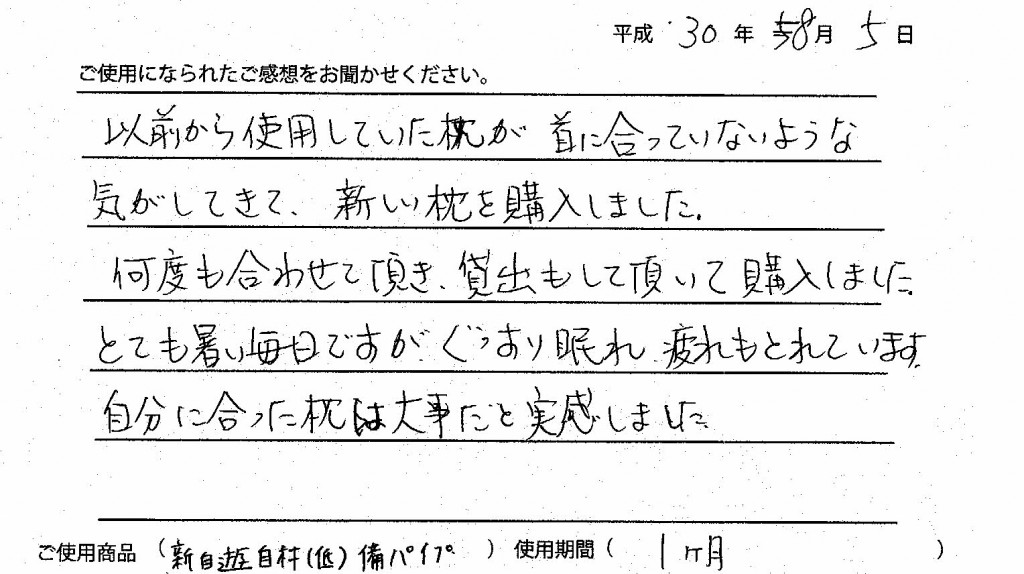 平成 30 年 8月 5 日
ご使用になられたご感想をお聞かせください。
以前から使用していた枕が 首に合っていないような
気がしてきて、新しい枕を購入しました。
何度も合わせて頂き、貸出もして頂いて購入しました
とても暑い毎日ですが ぐっすり眠れ 疲れもとれています。
自分に合った枕は大事だと実感しました
ご使用商品 ( 新自遊自材(低) 備パイプ ) 使用期間 ( 1ヶ月 )